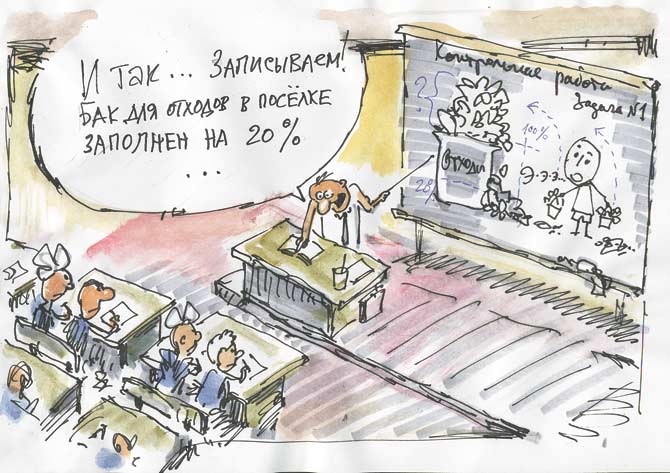 И ТАК... ЗАПИСЫВАЕМ!
БАК ДЛЯ ОТХОДОВ В ПОСЁЛКЕ
ЗАПОЛНЕН НА 20%
...
Контрольная работа
Задача №1
?
100%
ОТХОДЫ
Э-э-э...